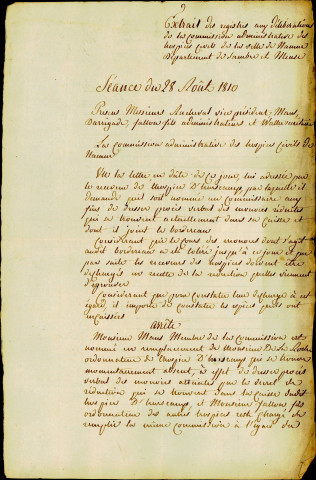 Extrait des registres aux délibérations
de la Commission administrative des
hospices civils de la ville de Namur
Département de Sambre et Meuse
Séance du 28 Août 1810
Présens Messieurs vice président, Mans,
fallon fils administrateurs et Wallez secrétaire
La Commission administrative des hospices civils de
Namur
Vu la lettre en date de ce jour lui adressée par
le receveur de l'hospice D'harscamp par laquelle il
demande qui soit nommé un Commissaire aux
fins de dresser procès verbal des monoies réduites
qui se trouvent actuellement dans sa Caisse et
dont il joint le bordereau
Considérant que le Cours des monoies dont s'agit
audit bordereau a été toléré jusqu'à ce jour et que
par suite les receveurs des hospices doivent être
déchargés en recette de la réduction quelles viennent
d'éprouver
Considérant que pour constater leur décharge à cet
égard, il importe de Constater les espèces quils ont
en caisses
arrête
Monsieur Mans Membre de la Commission est
nommé en remplacement de Monsieur
ordonnateur de l'hospice D'harscamp qui se trouve
momentanément absent, à l'effet de dresser procès
verbal des monoies atteintes par le décret de
réduction qui se trouvent dans la Caisse dudit
hospice D'harscamp et Monsieur fallon fils
ordonnateur des autres hospices reste chargé de
remplir la même commission à l'égard du